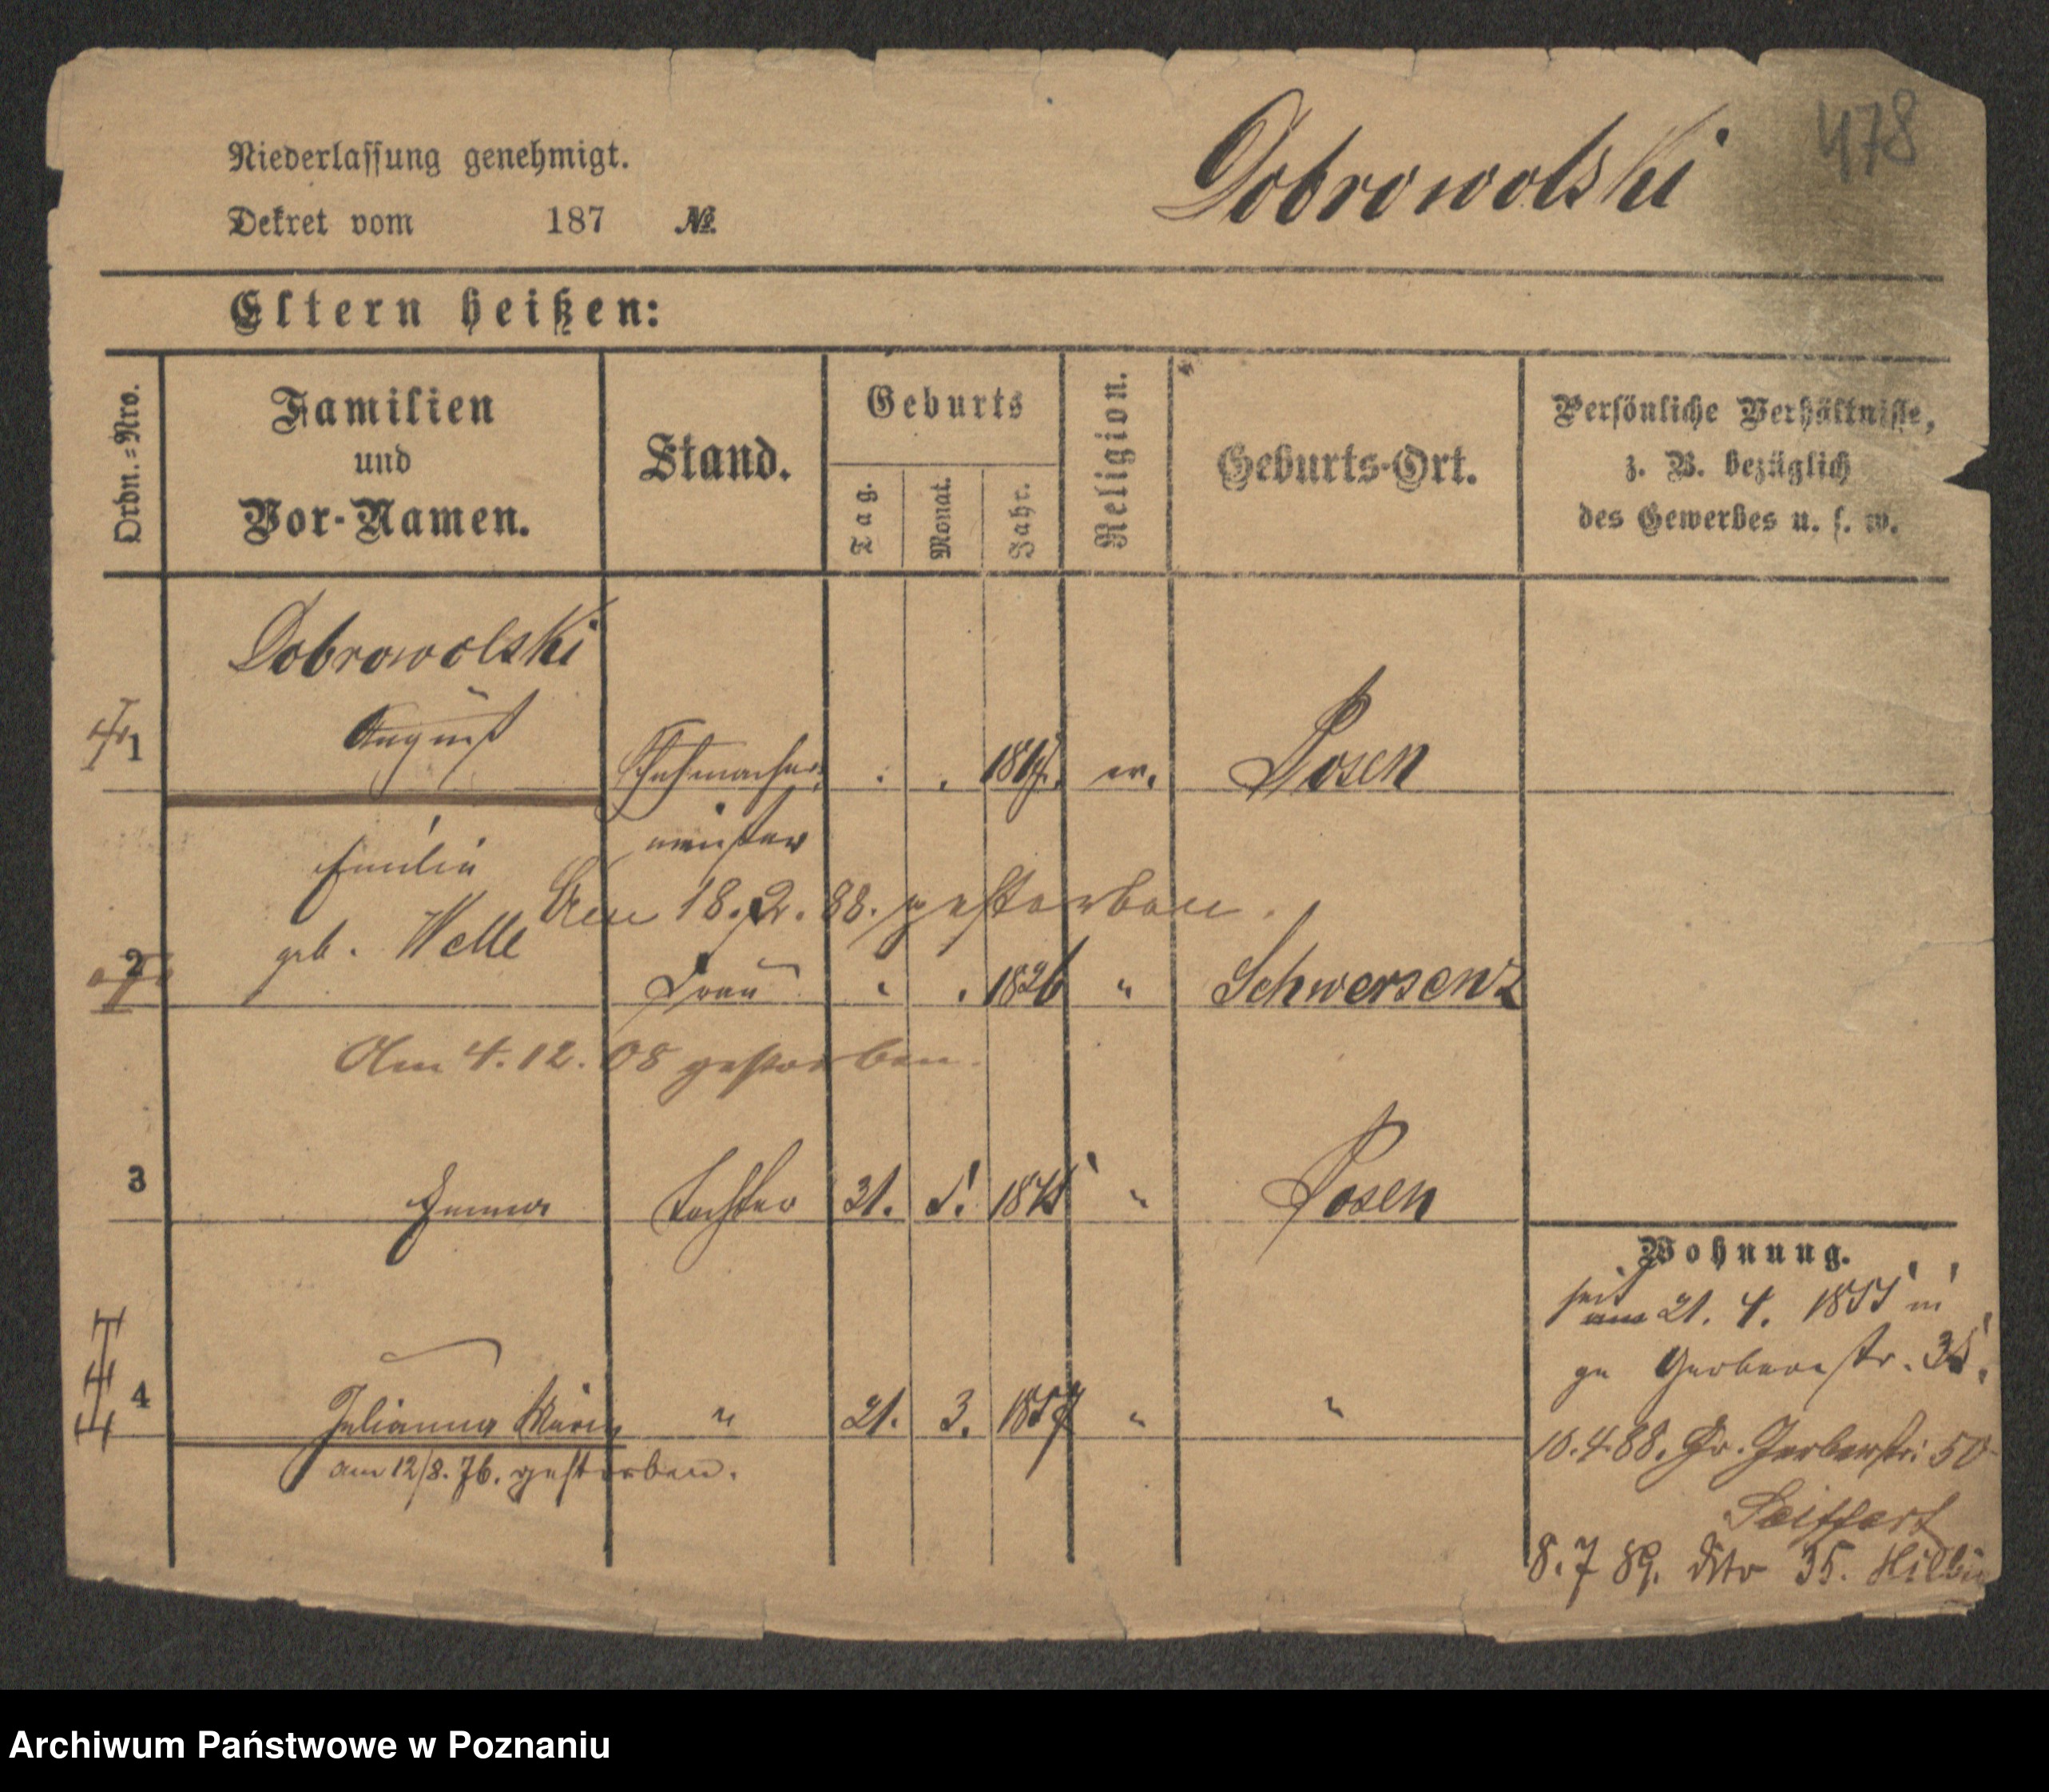 478
Dobrowolski
Niederlassung genehmigt.
Dekret vom 187 №
Eltern heißen:
Ordn.=Nro.
Familien
und
Vor-Namen.
Stand.
Geburts
Tag.
Monat.
Jahr.
Religion.
Geburts-Ort.
Persönliche Verhältnisse,
z. B. bezüglich
des Gewerbes u. s. w.
Dobrowolski
1 August Schuhmacher ev. Posen
meister
Emilie
Am 18. 2. 88. gestorben.
geb. Welle
2 Frau 1826 " Schwersenz
Am 4. 12. 08 gestorben.
3 Emma Tochter 21. 5. " Posen
Wohnung.
seit
am 21. 4. 1855 in
gr Gerberstr. 35.
4 Julianna Maria " 21. 3. 1857 " "
am 12/8. 76. gestorben.
10.4.88. Gr. Gerberstr. 50
Seiffert
8. 7 89. dito 35.
Archiwum Państwowe w Poznaniu